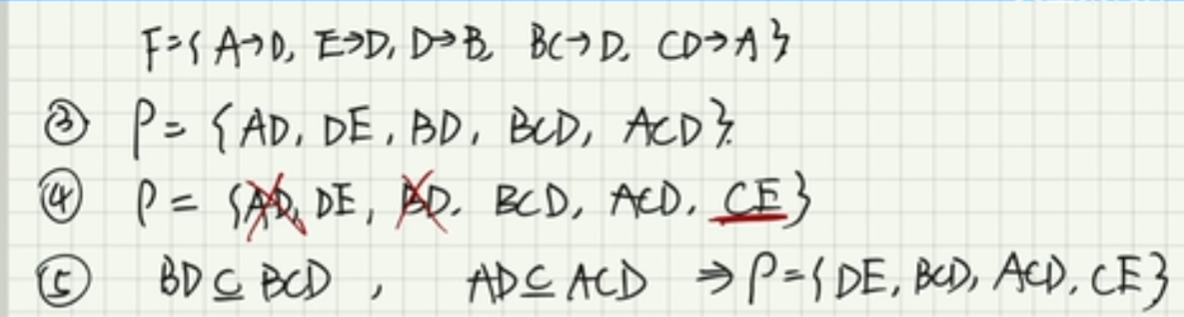 F={A→D, E→D, D→B, BC→D, CD→A}
③ ρ={AD, DE, BD, BCD, ACD}.
④ ρ={AD, DE, BD, BCD, ACD, CE}
⑤ BD⊆BCD, AD⊆ACD ⇒ρ={DE, BCD, ACD, CE}